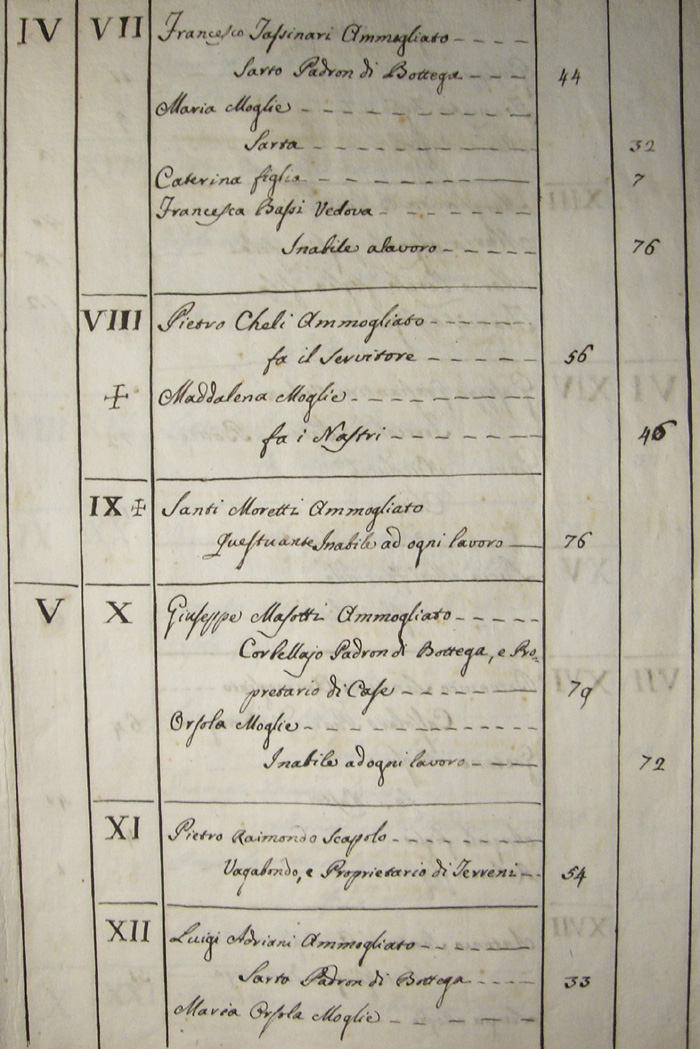 IV VII Francesco Tassinari Ammogliato
Sarto Padron di Bottega 44
Maria Moglie
Sarta 32
Caterina figlia 7
Francesca Bassi Vedova
Inabile alavoro 76
VIII Pietro Cheli Ammogliato
fa il Servitore 56
Maddalena Moglie
fa i Nastri 46
IX Santi Moretti Ammogliato
Questuante Inabile ad ogni lavoro 76
V X Giuseppe Masotti Ammogliato
Corbellajo Padron di Bottega, e Pro-
pretario di Case 79
Orsola Moglie
Inabile ad ogni lavoro 72
XI Pietro Raimondo Scapolo
Vagabondo, e Proprietario di Terreni 54
XII Luigi Adriani Ammogliato
Sarto Padron di Bottega 33
Maria Orsola Moglie